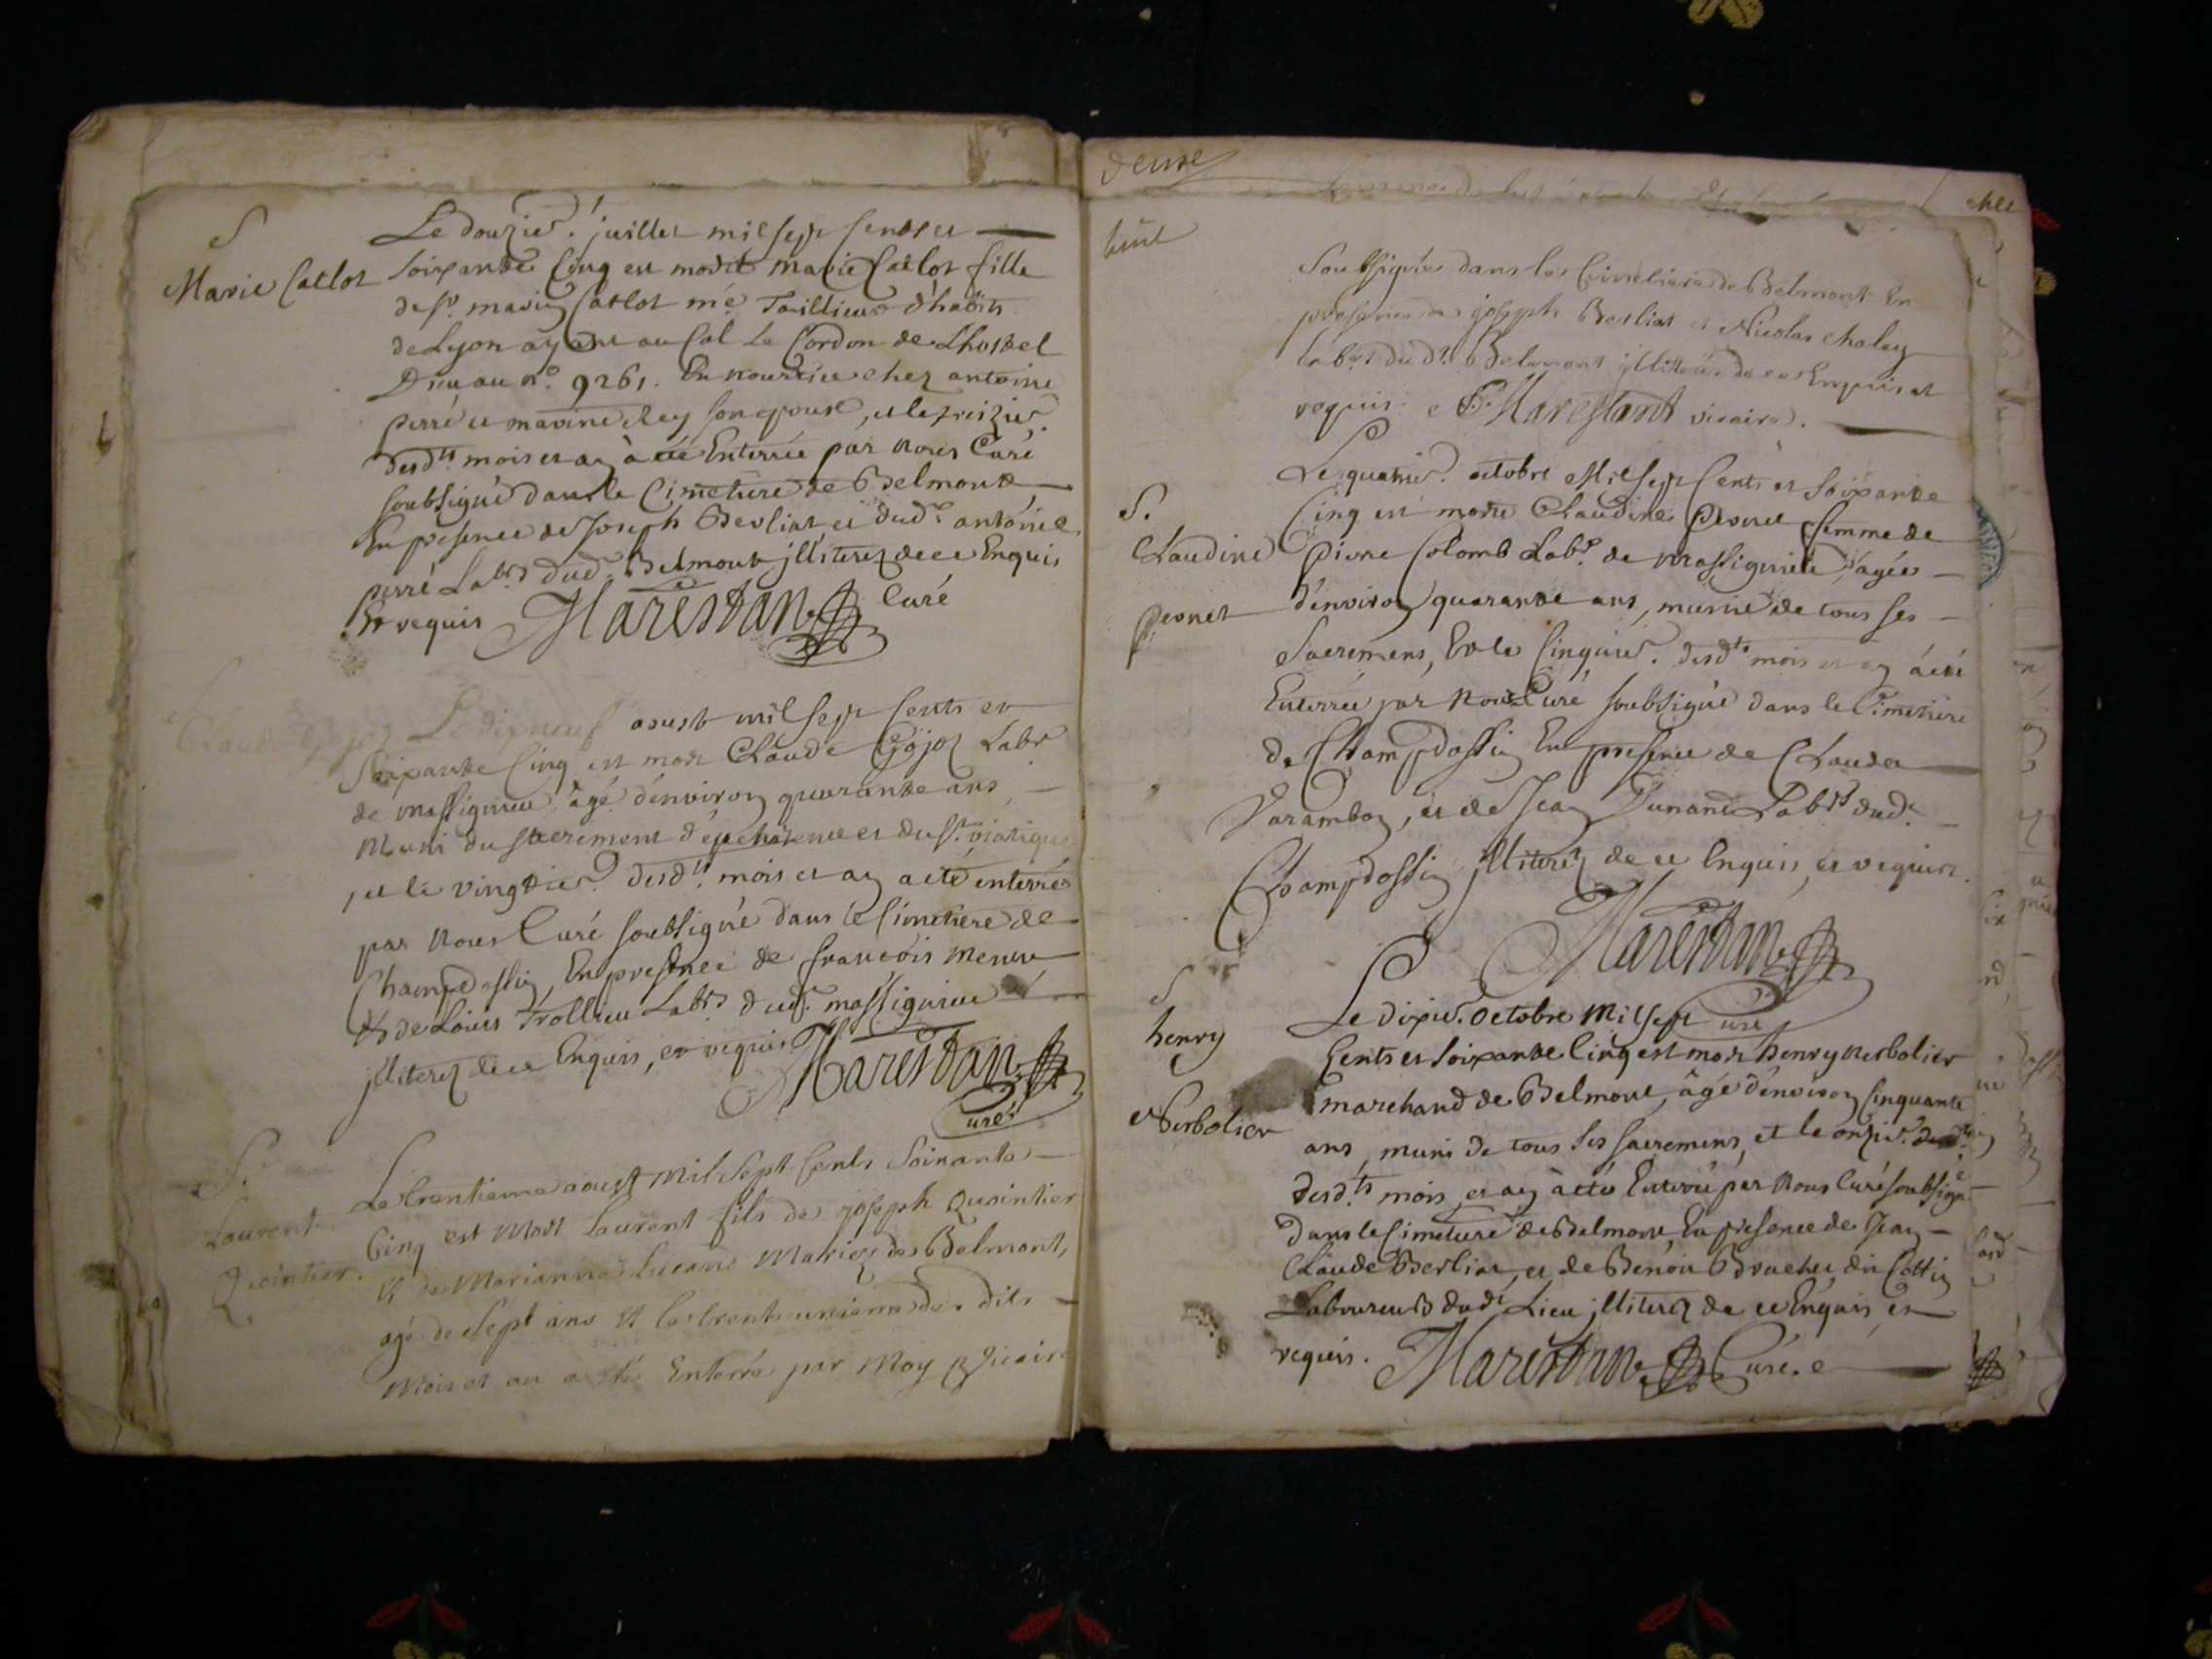 S
Marie Catlot
Le douzie. juillet mil sept cents et
soixante cinq est morte marie Catlot fille
de sr. marin Catlot me. Taillieur d'habits
de Lyon ayant au Col Le Cordon de Lhostel
Dieu au no. 9261. En nourrice chez antoine
perré et marine Rey son epouse, et le treizie.
desdts. mois et an à été Enterrée par nous Curé
soubsigné dans le Cimetiere de Belmont
En presence de Joseph Berliat et dudt. antoine
perré Labrs. dudt. Belmont jlliterez de ce Enquis
Et requis Marestan Curé
Claude Gojoz
Le dix neuf aoust mil sept cents et
Soixante Cinq est mort Claude Gojoz Labr
de massignieu, âgé d'environ quarante ans
Muni du sacrement de penitence et du st. viatique
, et le vingtie. desdts. mois et an a été enterré
par nous Curé soubsigné dans le Cimetiere de
Champdossin, En presence de francois
& de Louis Trollieu Labrs. dudt. massignieu
jlliterez de ce Enquis, et requis Marestan
Curé
S.
Laurent
Quintier.
Le trentieme aoust Mil Sept Cents Soixante
Cinq est Mort Laurent fils de joseph Quintier
Et de Marianne Mariez de Belmont,
agé de Sept ans Et le trente unieme des dits
Mois et an a été Enterré par Moy Vicaire
Soussigné dans le Cimetiere de Belmont En
presence de joseph Berliat et Nicolas Chaley
Labrs. dudt. Belmont jlliterés de ce Enquis et
requis. Marestant vicaire.
S.
Claudine
peonet
Le quatrie. octobre Mil sept Cents et soixante
Cinq est morte Claudine femme de
pierre Colomb Labr. de Massignieu, âgée
d'environ quarante ans, munie de tous ses
Sacremens, Et le Cinquie. desdts mois et an a été
Enterrée par Nous Curé soubsigné dans le Cimetiere
de Champdossin En presence de Claude
Varambon, et de Jean Labrs. dudt.
Champdossin jlliterez de ce Enquis, et requis.
Marestan
Curé
S
henry
Nerbolier
Le dixie. octobre Mil sept
Cents et soixante Cinq est mort henry Nerbolier
marchand de Belmont, âgé d'environ Cinquante
ans, muni de tous ses sacremens, et le onzie.
desdts mois et an à été Enterré par Nous Curé soubsigné
dans le Cimetiere de Belmont, En presence de Jean
Claude Berliat, et de Benoit Brachet dit Cottin
Laboureurs dudt Lieu jlliterez de ce Enquis et
requis. Marestan Curé.